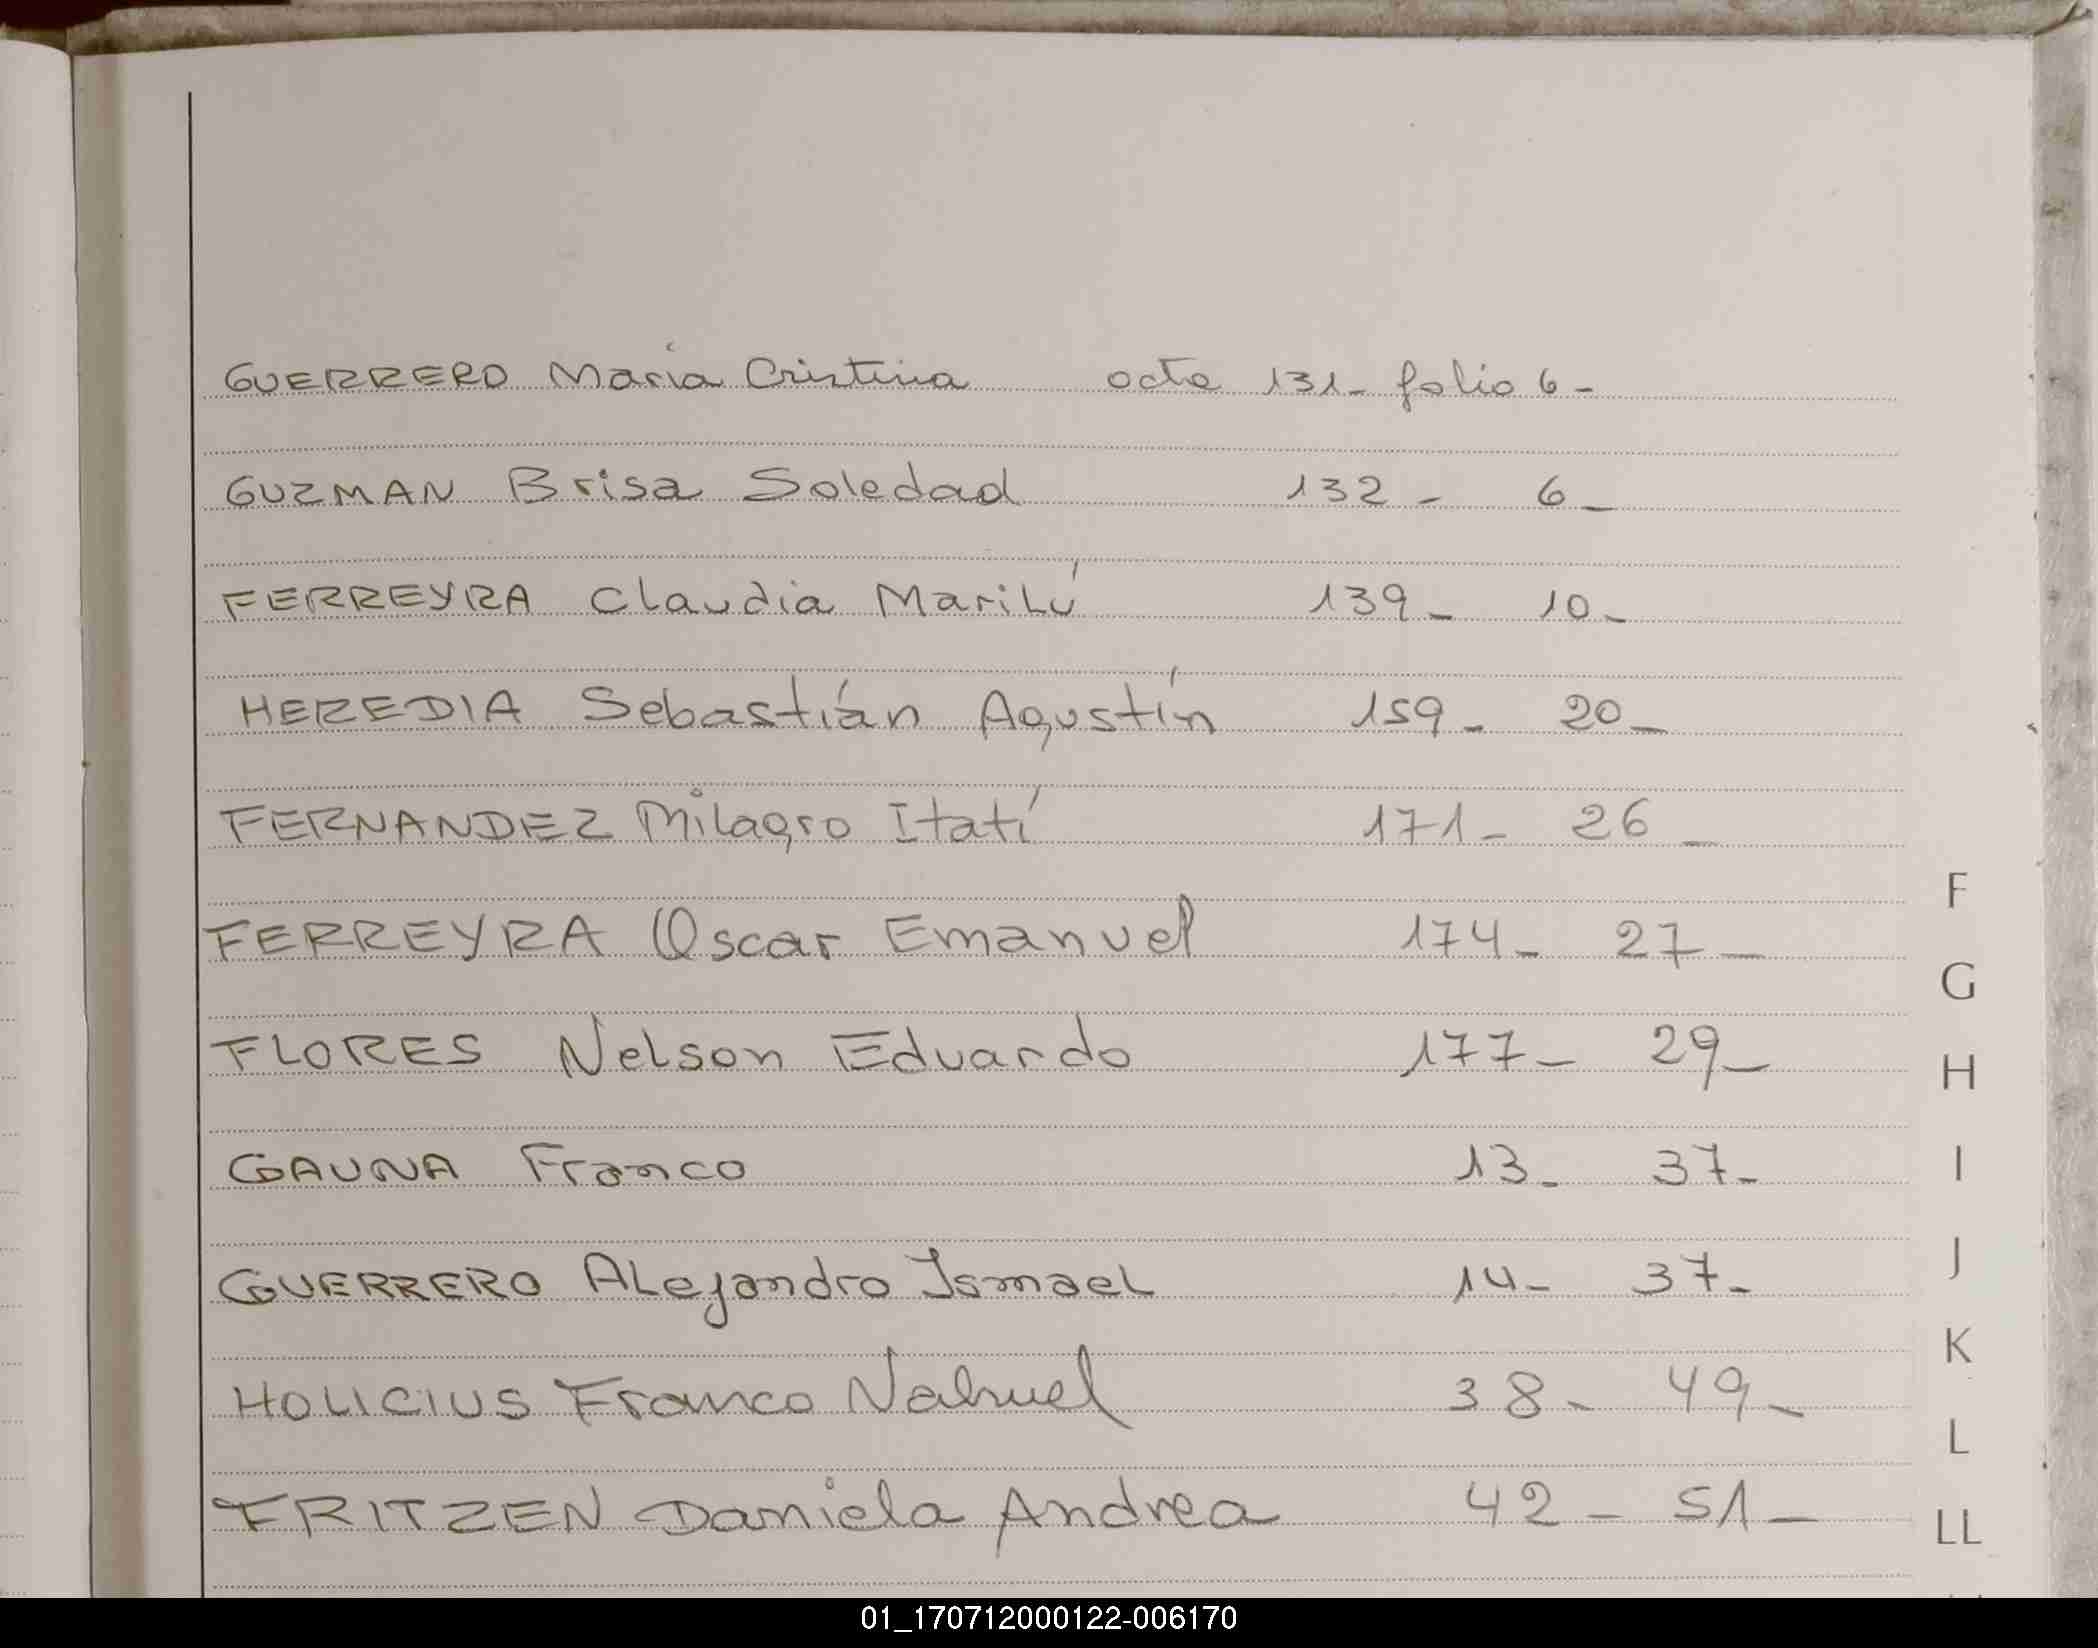 GUERRERO María Cristina acta 131- folio 6-
GUZMAN Brisa Soledad 132- 6-
FERREYRA Claudia Marilú 139- 10-
HEREDIA Sebastián Agustín 159- 20-
FERNANDEZ Milagro Itatí 171- 26-
F
FERREYRA Oscar Emanuel 174- 27-
G
FLORES Nelson Eduardo 177- 29-
H
GAUNA Franco 13- 37-
I
GUERRERO Alejandro Ismael 14- 37-
J
K
HOLICIUS Franco Nahuel 38- 49-
L
FRITZEN Daniela Andrea 42- 51-
LL
01_170712000122-006170